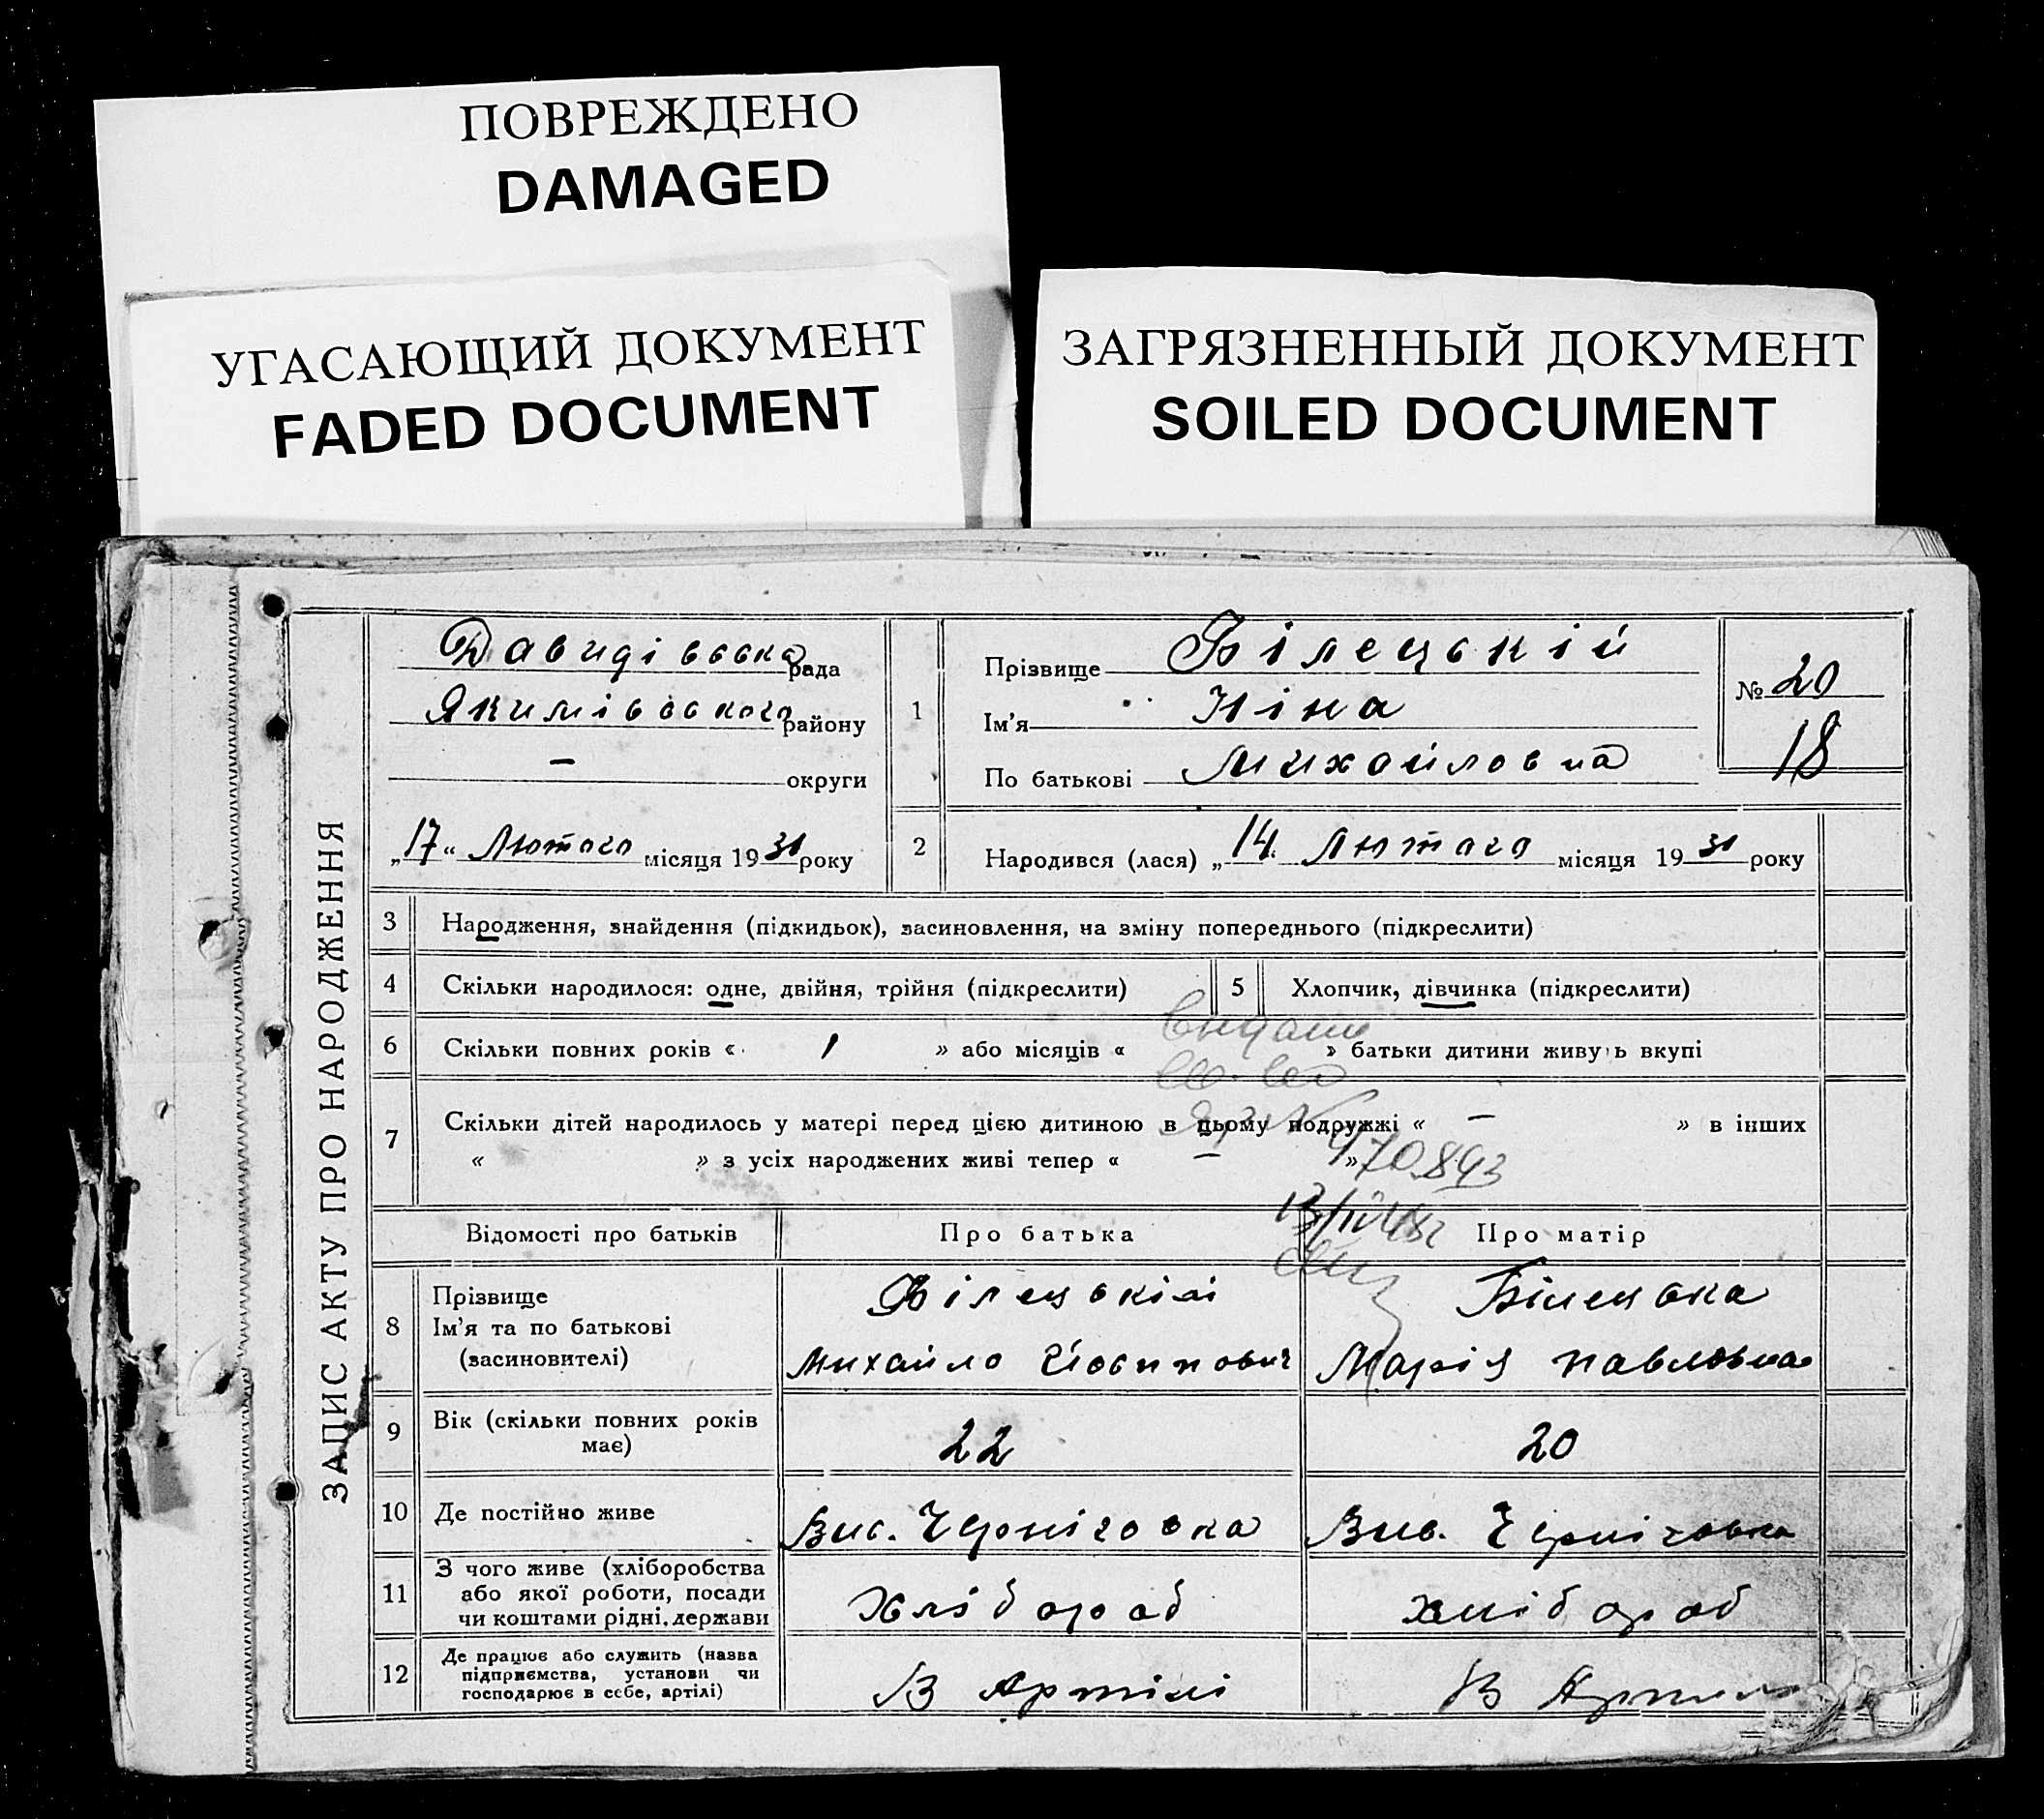 ПОВРЕЖДЕНО
DAMAGED
УГАСАЮЩИЙ ДОКУМЕНТ
FADED DOCUMENT
ЗАГРЯЗНЕННЫЙ ДОКУМЕНТ
SOILED DOCUMENT
ЗАПИС АКТУ ПРО НАРОДЖЕННЯ
Давидівська рада
Якимівського району
— округи
„17“ Лютого місяця 1931 року
1
Прізвище Білецькій
Ім'я Ніна
По батькові Михайловна
№ 20
18
2 Народився (лася) „14“ Лютого місяця 1931 року
3 Народження, знайдення (підкидьок), засиновлення, на зміну попереднього (підкреслити)
4 Скільки народилося: одне, двійня, трійня (підкреслити) 5 Хлопчик, дівчинка (підкреслити)
6 Скільки повних років « 1 » або місяців « » батьки дитини живуть вкупі
7 Скільки дітей народилось у матері перед цією дитиною в цьому подружжі « — » в інших
« » з усіх народжених живі тепер « — »
Відомості про батьків Про батька Про матір
8 Прізвище Білецькій Білецька
Ім'я та по батькові Михайло Йосипович Марія Павловна
(засиновителі)
9 Вік (скільки повних років має) 22 20
10 Де постійно живе Вис. Черніговка Вис. Черніговка
11 З чого живе (хліборобства
або якої роботи, посади Хлібороб хлібороб
чи коштами рідні, держави
12 Де працює або служить (назва
підприємства, установи чи В Артілі В Артілі
господарює в себе, артілі)